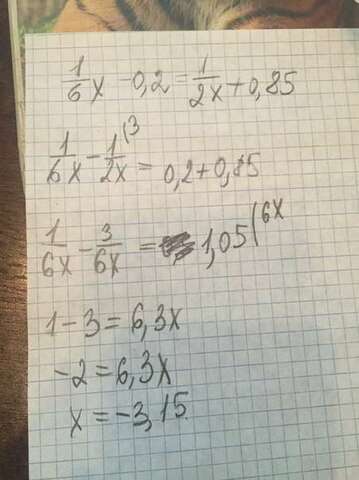 1/6x - 0,2 = 1/2x + 0,85
1/6x - 1/2x (3 = 0,2 + 0,85
1/6x - 3/6x = 1,05 (6x
1 - 3 = 6,3x
-2 = 6,3x
x = -3,15